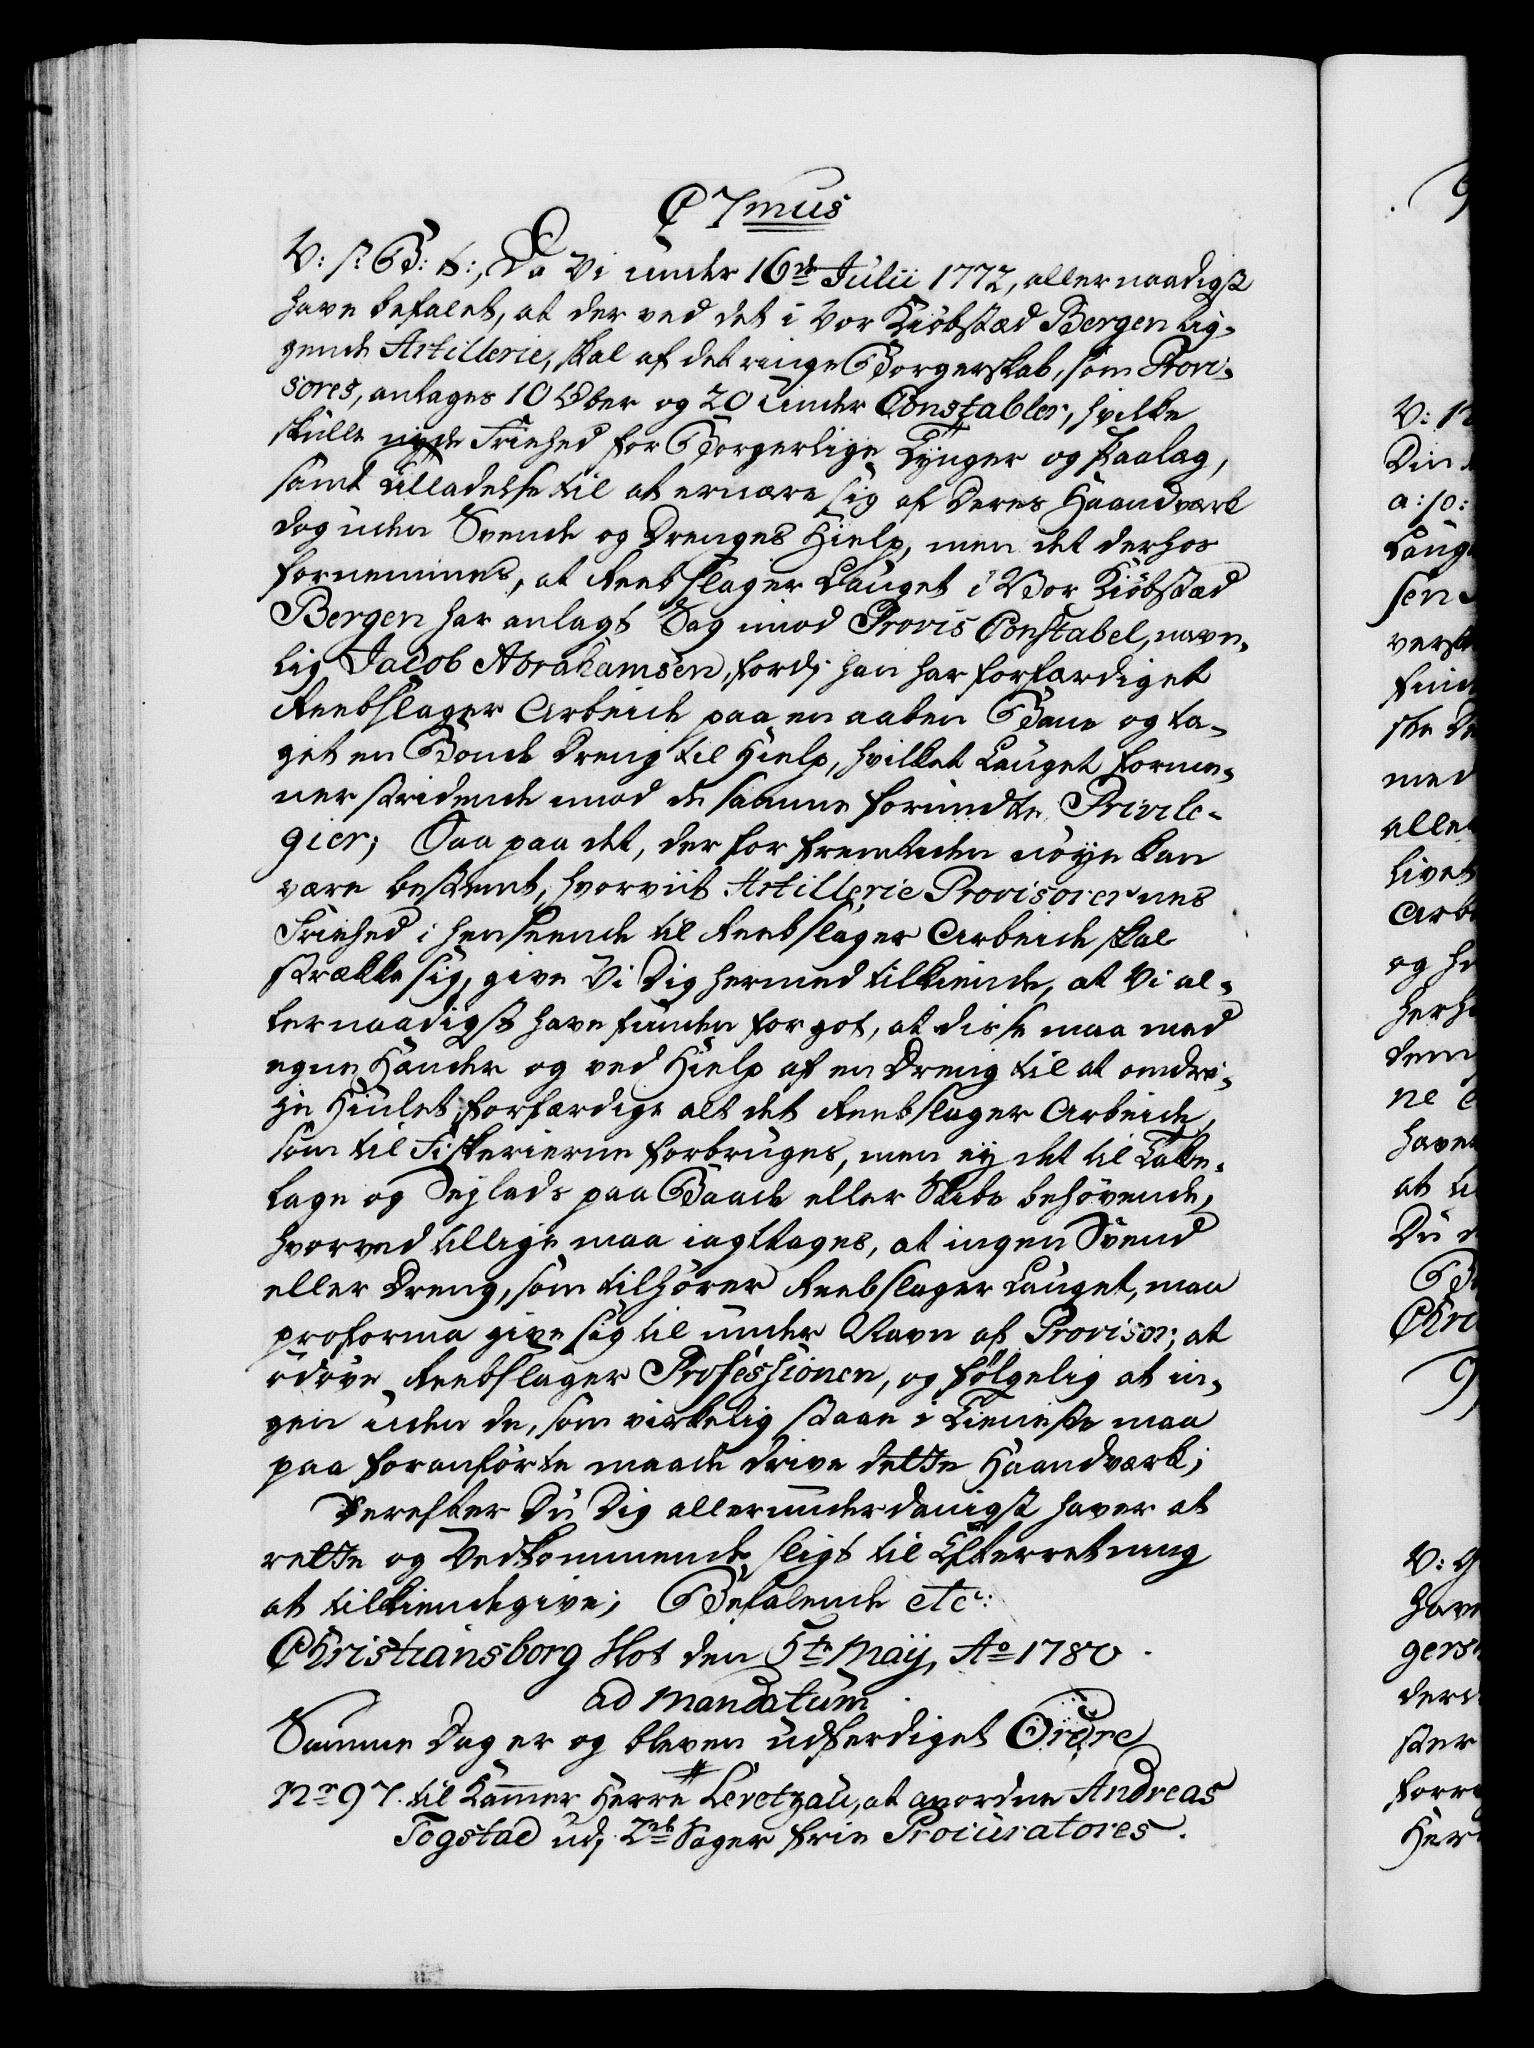 C 7mus
V: s: G: t:, Da Vi under 16de Julii 1772, allernaadigst
have befalet, at der ved det i Vor Kiöbstæd Bergen lig-
gende Artillerie, skal af det ringe Borgerskab, som Provi-
sores, antages 10 Ober og 20 Under Constabler, hvilke
skulle nyde Friehed for Borgerlige Tynger og Paalag,
samt Tilladelse til at ernære sig af deres Haandværk
dog uden Svende og Drenges Hielp, men det derhos
fornemmes, at Reebslager Lauget i Vor Kiöbstæd
Bergen har anlagt Sag imod Provis Constabel, navn-
lig Jacob Abrahamsen, fordj han har forfærdiget
Reebslager Arbeide paa en aaben Bane og ta-
get en Bonde Dreng til Hielp, hvilket Lauget forme-
ner stridende imod de samme forundte Privile-
gier; Saa paa det, der for Fremtiden nöye kan
være bestemt, hvorviit Artillerie Provisorernes
Friehed i henseende til Reebslager Arbeide skal
strække sig, give Vi Dig hermed tilkiende, at Vi al-
lernaadigst have funden for got, at disse maa med
egne Hænder og ved Hielp af en Dreng til at omdre-
je Hiulet, forfærdige alt det Reebslager Arbeide,
som til Fiskerierne forbruges, men ej det til Takke-
lage og Sejlads paa Baade eller Skibe behövende,
hvorved tillige maa iagttages, at ingen Svend
eller Dreng, som tilhörer Reebslager Lauget, maa
proforma give sig til under Navn af Provisor, at
udöve Reebslager Professionen, og fölgelig at in-
gen uden de, som virkelig staae i Tieneste maa
paa foranförte maade drive dette Haandværk;
Derefter Du Dig allerunderdanigst haver at
rette og Vedkommende sligt til Efterretning
at tilkiendegive; Befalende etc:
Christiansborg Slot den 5te Maij, Ao 1780.
ad mandatum
Samme Dag er og bleven udferdiget Ordre
No 97. til Kammer Herre Levetzau, at anordne Andreas
Togstad udj 2de Sager frie Procuratores.